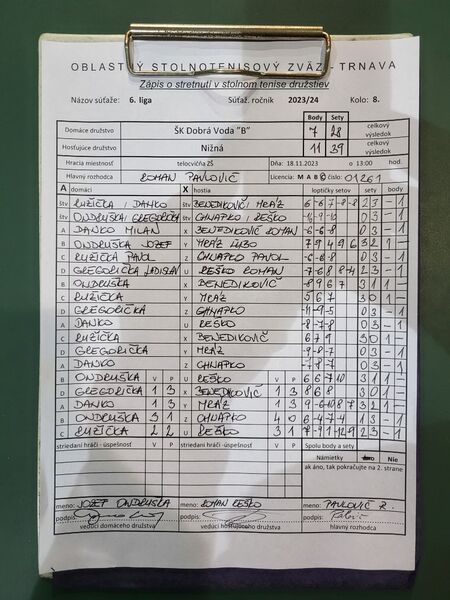 OBLASTNÝ STOLNOTENISOVÝ ZVÄZ - TRNAVA
Zápis o stretnutí v stolnom tenise družstiev
Názov súťaže: 6. liga Súťaž. ročník 2023/24 Kolo: 8.
Body Sety
Domáce družstvo ŠK Dobrá Voda "B" 7 28 celkový výsledok
Hosťujúce družstvo Nižná 11 39 celkový výsledok
Hracia miestnosť telocvičňa ZŠ Dňa: 18.11.2023 o 13:00 hod.
Hlavný rozhodca ROMAN PAVLOVIČ Licencia M A B číslo: 01261
A domáci X hostia loptičky setov sety body
štv RUŽIČKA, DANKO štv BENEDIKOVIČ MRÁZ 6 -6 7 -8 -8 23 - 1
štv ONDRUŠKA, GREGORIČKA štv CHNAPKO, REŠKO 03 - 1
A DANKO MILAN X BENEDIKOVIČ ROMAN -6 -6 -8 03 - 1
B ONDRUŠKA JOZEF Y MRÁZ ĽUBO 32 1 -
C RUŽIČKA PAVOL Z CHNAPKO PAVOL -6 -8 -8 03 - 1
D GREGORIČKA LADISLAV U REŠKO ROMAN 23 - 1
B ONDRUŠKA X BENEDIKOVIČ 31 1 -
C RUŽIČKA Y MRÁZ 5 6 7 30 1 -
D GREGORIČKA Z CHNAPKO -11 -9 -5 03 - 1
A DANKO U REŠKO -8 -7 -8 03 - 1
C RUŽIČKA X BENEDIKOVIČ 6 7 9 30 1 -
D GREGORIČKA Y MRÁZ -9 -8 -7 03 - 1
A DANKO Z CHNAPKO -7 -8 -7 03 - 1
B ONDRUŠKA V P U REŠKO V P 31 1 -
D GREGORIČKA 1 3 X BENEDIKOVIČ 1 3
A DANKO 1 3 Y MRÁZ 1 3
B ONDRUŠKA 3 1 Z CHNAPKO 4 0
C RUŽIČKA 2 2 U REŠKO 3 1 23 - 1
striedaní hráči - úspešnosť V P striedaní hráči - úspešnosť V P Spolu body a sety
Námietky Nie
ak áno, tak pokračujte na 2. strane
meno: JOZEF ONDRUŠKA meno: ROMAN REŠKO meno: PAVLOVIČ R.
podpis: podpis: podpis:
vedúci domáceho družstva vedúci hosťujúceho družstva hlavný rozhodca